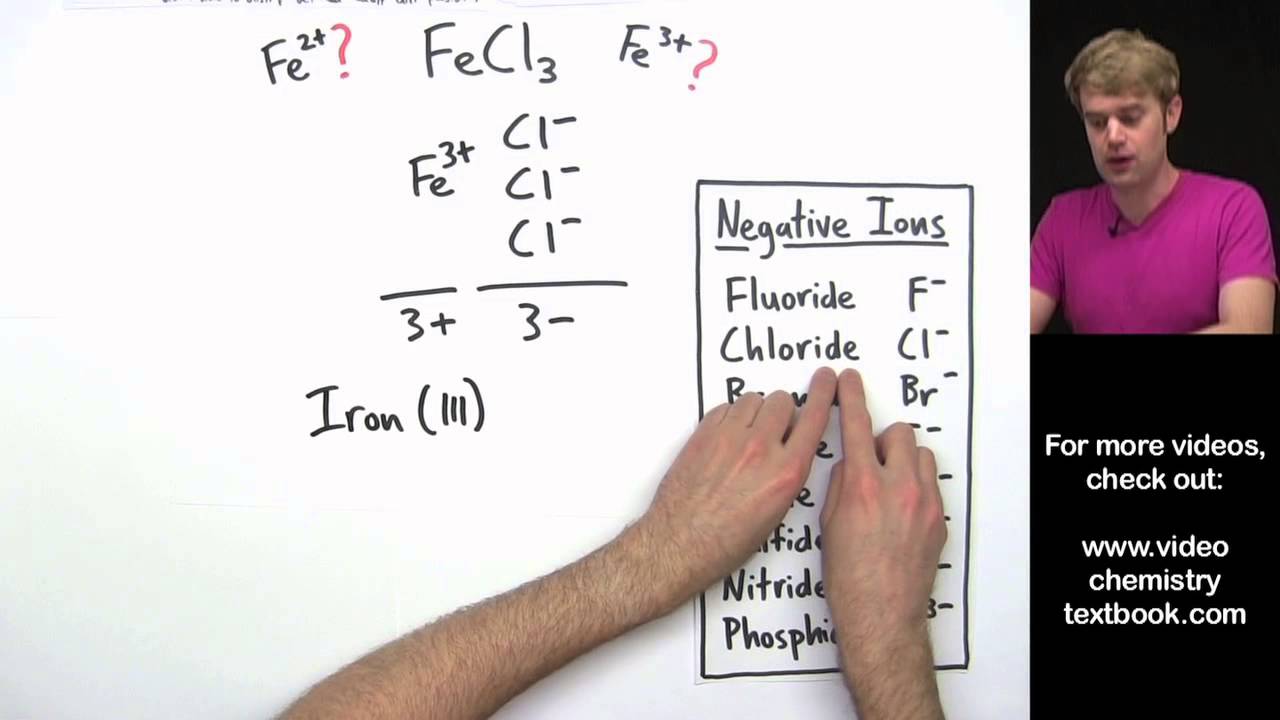 Fe²⁺? FeCl₃ Fe³⁺?
Cl⁻
Fe³⁺ Cl⁻
Cl⁻
3+ 3−
Iron (III)
Negative Ions
Fluoride F⁻
Chloride Cl⁻
Br⁻
Nitride
For more videos,
check out:
www.video
chemistry
textbook.com